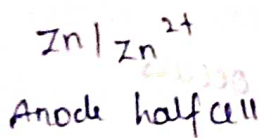 Zn | Zn²⁺
Anode half cell